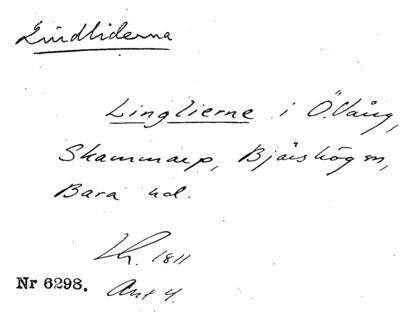 Lindliderna
Linglierne i Ö.Vång,
Skammarp, Bjärshögen,
Bara hd.
Lh. 1811
Nr 6298. Ant 4.